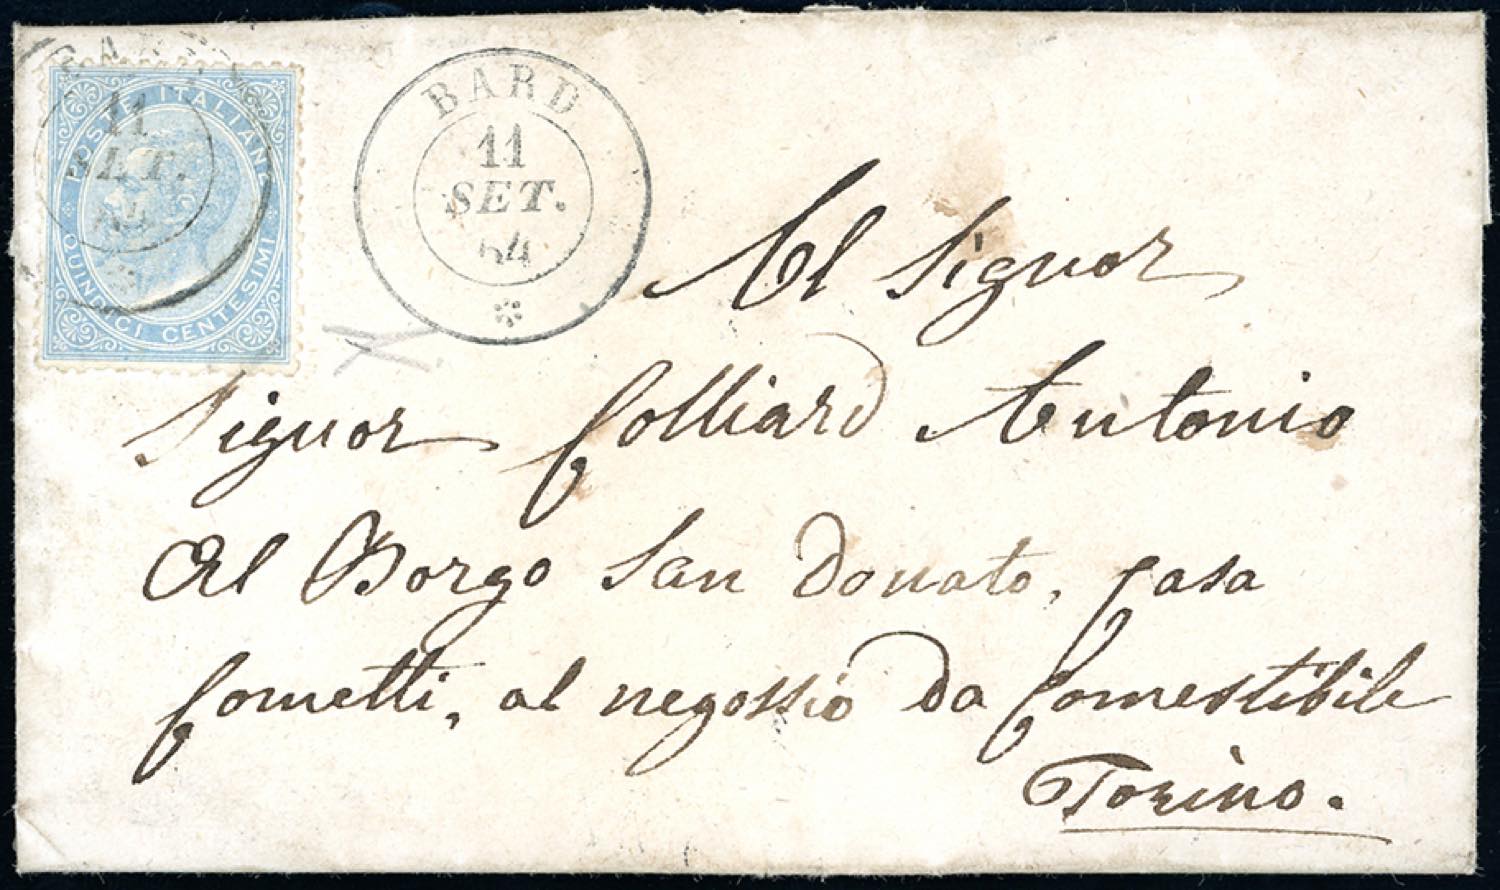 POSTE ITALIANE
QUINDICI CENTESIMI
11
SET.
64
BARD
11
SET.
64
Al Signor
Signor Colliard Antonio
Al Borgo San Donato, Casa
Cometti, al negossio da Comestibile
Torino.